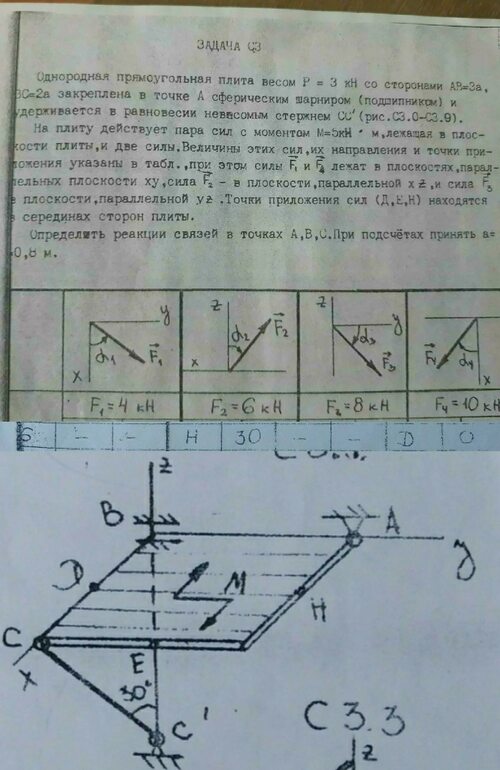 ЗАДАЧА С3
Однородная прямоугольная плита весом P = 3 кН со сторонами АВ=3а,
ВС=2а закреплена в точке А сферическим шарниром (подшипником) и
удерживается в равновесии невесомым стержнем СС' (рис.С3.0-С3.9).
На плиту действует пара сил с моментом М=5кН · м,лежащая в плос-
кости плиты,и две силы.Величины этих сил,их направления и точки при-
ложения указаны в табл.,при этом силы F₁ и F₄ лежат в плоскостях,парал-
лельных плоскости ху,сила F₂ - в плоскости,параллельной xz,и сила F₃
в плоскости,параллельной yz.Точки приложения сил (Д,Е,Н) находятся
в серединах сторон плиты.
Определить реакции связей в точках А,В,С.При подсчётах принять а=
0,8 м.
y α₁ F₁ x
z α₂ F₂ x
z y α₃ F₃
y F₄ α₄ x
F₁=4 кН F₂=6 кН F₂=8 кН F₄=10 кН
- - Н 30 - - D 0
z
B A
y
D M H
C
x E
30°
C'
С 3.3
z